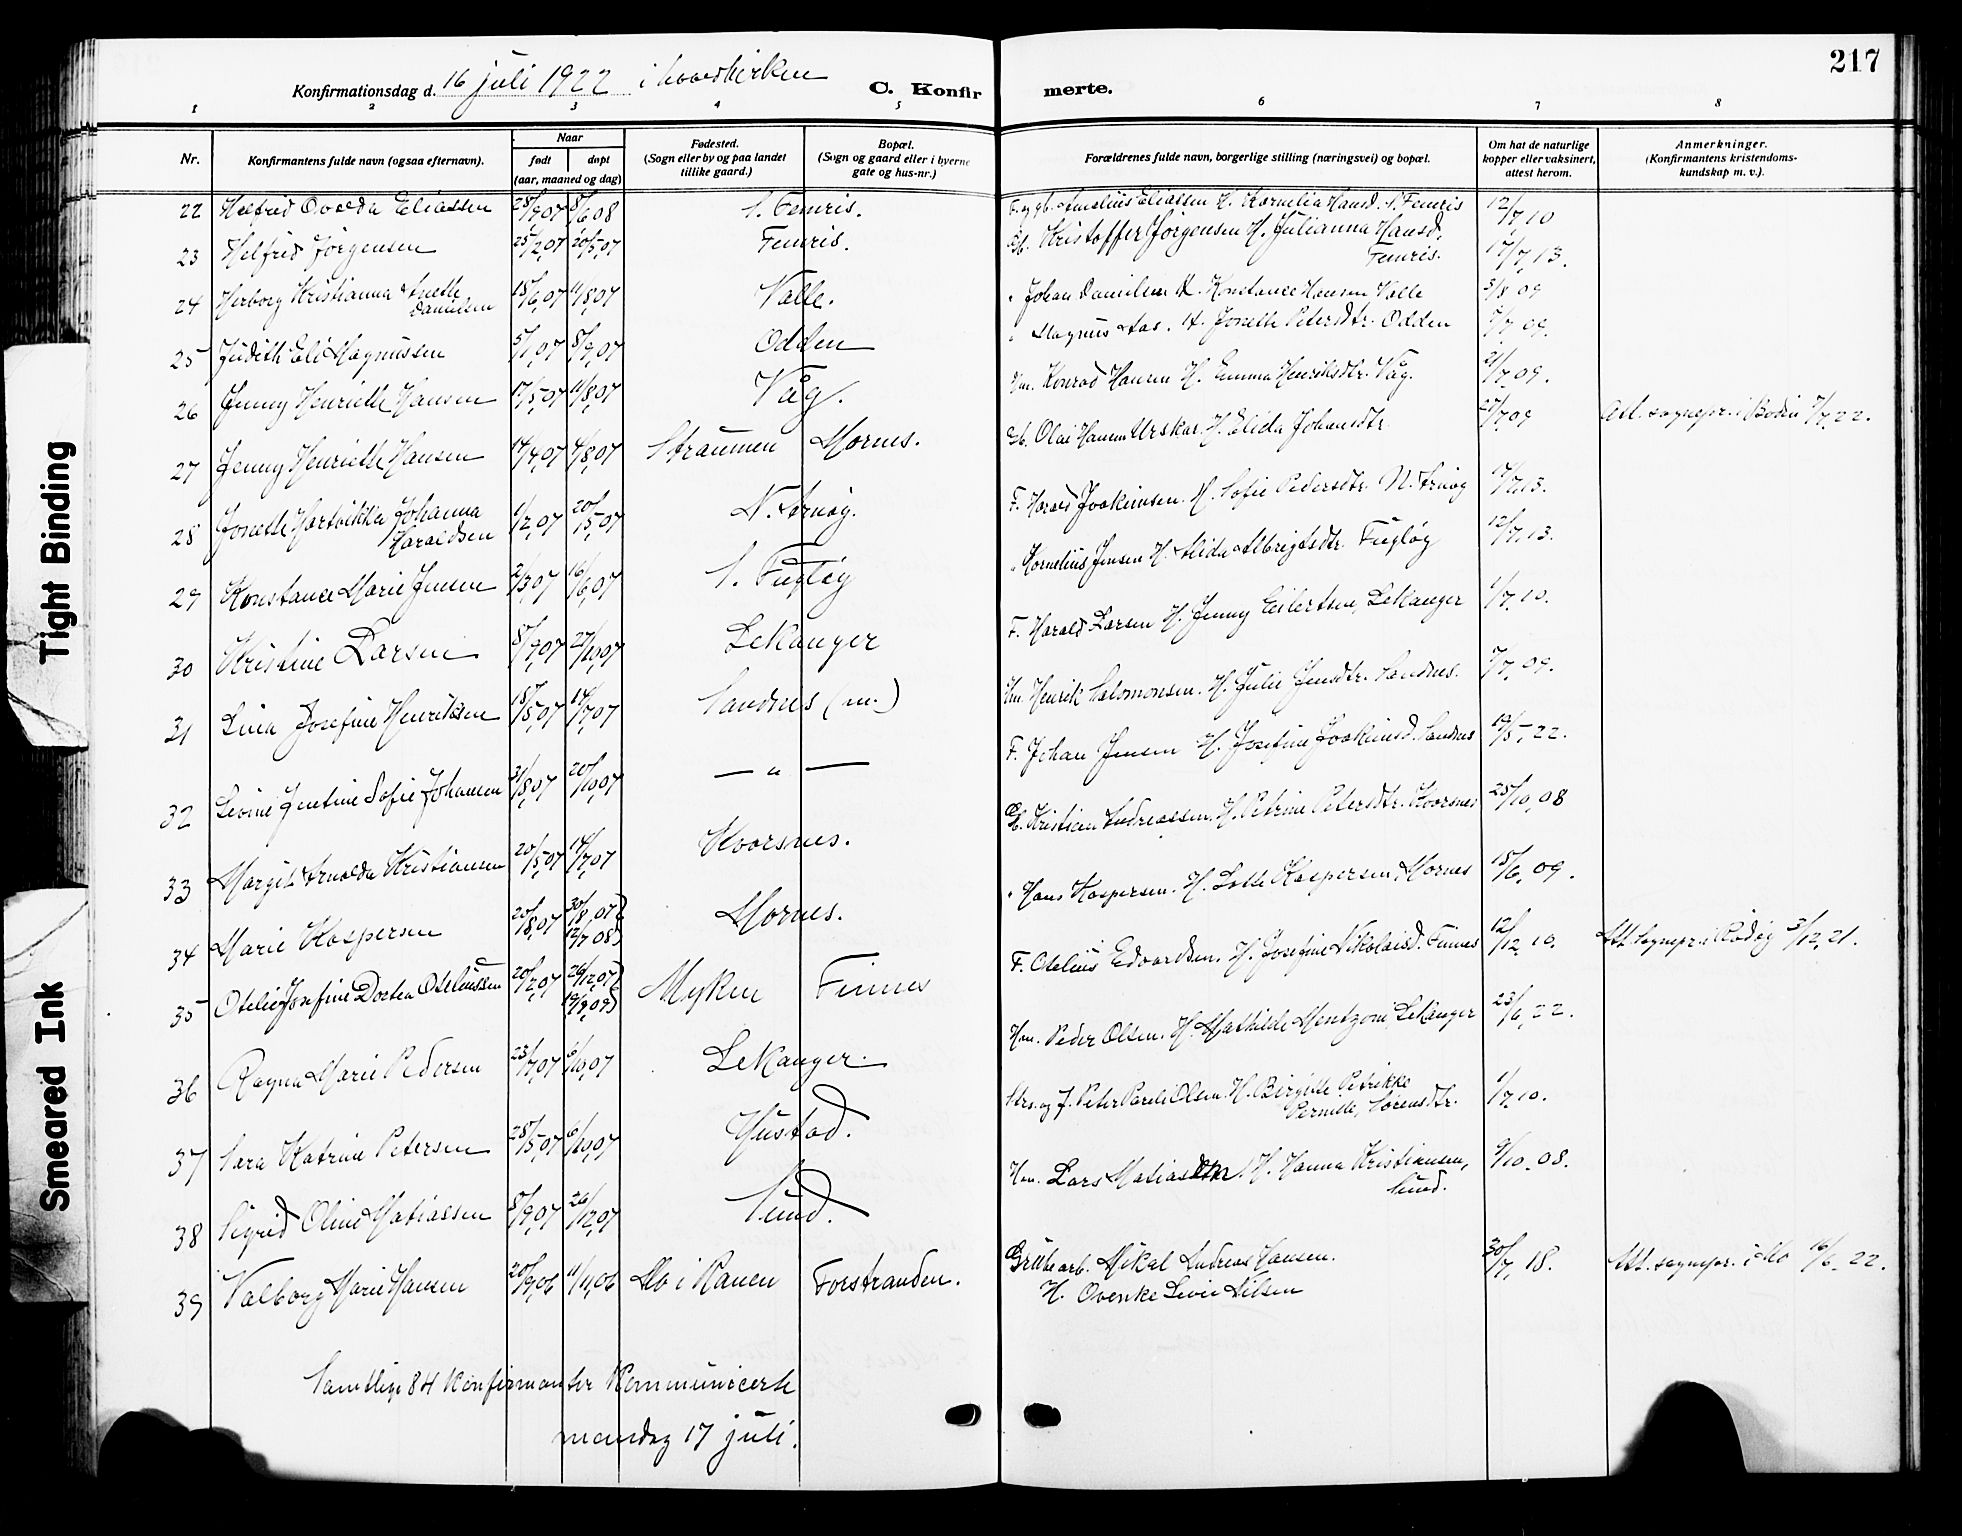 217
Konfirmationsdag d. 16 juli 1922 i hovedkirken
C. Konfirmerte.
1 2 3 4 5 6 7 8
Nr.
Konfirmantens fulde navn (ogsaa efternavn).
Naar
født døpt
(aar, maaned og dag)
Fødested.
(Sogn eller by og paa landet
tillike gaard.)
Bopæl.
(Sogn og gaard eller i byerne
gate og hus-nr.)
Forældrenes fulde navn, borgerlige stilling (næringsvei) og bopæl.
Om hat de naturlige
kopper eller vaksinert,
attest herom.
Anmerkninger.
(Konfirmantens kristendoms-
kundskap m. v.).
22 Helfrid Ovedia Eliassen 28/9,07 8/6 08 S. Femris. Amelius Eliassen H. Kornelia Hansd. S. Femris 12/7,10
23 Helfrid Jørgensen 25/2,07 20/5,07 Femris. Kristoffer Jørgensen H. Julianna Hansd.
Femris. 17/7,13.
24 Herborg Kristianna Anette
Danielsen 15/6,07 11/8,07 Valle. " Johan Danielsen H. Konstance Hansen Valle 3/8 09
25 Judith Eli Magnussen 5/1,07 8/9,07 Odden " Magnus Aas. H. Jonette Petersdtr. Odden 7/7,09.
26 Jenny Henriette Hansen 17/5,07 11/8,07 Våg. Hm. Konrad Hansen H. Emma Henriksdtr. Våg. 21/7,09.
27 Jenny Henriette Hansen 14/4,07 4/8,07 Straumen Mornes. Gb. Olai Hansen Urskar. H. Elida Johansdtr. 27/7,09 Att. sognepr. i Bodin 7/7,22.
28 Jonette Hartvikka Johanna
Haraldsen 1/2,07 20/5,07 N. Arnøy. F. Harald Joakimsen. H. Sofie Pedersdtr. N. Arnøy 7/7,13.
29 Konstance Marie Jensen 2/3,07 16/6,07 S. Fugløy " Kornelius Jensen H. Alida Albrigtsdtr. Fugløy 12/7,13.
30 Kristine Larsen 8/9,07 27/10,07 Lekanger F. Harald Larsen H. Jenny Eilertsen, Lekanger 1/7,10.
31 Lina Josefine Henriksen 18/5,07 14/7,07 Sandnes (m.) Hm. Henrik Salomonsen. H. Julie Jensdtr. Sandnes. 7/7,09.
32 Levine Jentine Sofie Johansen 31/8,07 20/10,07 — " — F. Johan Jensen H. Josefine Joakimsd. Sandnes 12/5,22.
33 Margit Arnolda Kristiansen 20/5,07 14/7,07 Kvarsnes. Gb. Kristian Andreassen. H. Petrine Petersdtr. Kvarsnes 25/10,08
34 Marie Kaspersen 20/8,07 30/8,07
12/7 08 Mornes. " Hans Kaspersen. H. Lotte Kaspersen, Mornes 15/6,09.
35 Otelie Josefine Dortea Oteliussen 20/2,07 26/12,07
19/9,09 Myken Finnes F. Otelius Edvardsen. H. Josefine Nikolaisd. Finnes 12/12,10. Att. sognepr. i Rødøy 3/12,21.
36 Ragna Marie Pedersen 23/7,07 6/10,07 Lekanger. Hm. Peder Olsen. H. Mathilde Mentzoni, Lekanger 23/6,22.
37 Sara Katrine Petersen 28/5,07 6/10,07 Gustad. Strs. og f. Peter Pareli Olsen. H. Birgitte Petrikke
Pernille, Sørensdtr. 1/7,10.
38 Sigrid Oline Matiassen 8/9,07 26/12,07 Sund. Hm. Lars Matiassen. H. Hanna Kristiansen,
Sund. 9/10,08.
39 Valborg Marie Hansen 20/9,06 11/11,06 Mo i Ranen Forstranden. Grubearb. Mikal Andreas Hansen.
H. Ovenke Levie Nilsen 30/7,18. Att. sognepr. i Mo 16/6,22.
Samtlige 84 konfirmanter kommunicerte
mandag 17 juli.
Tight Binding
Smeared Ink